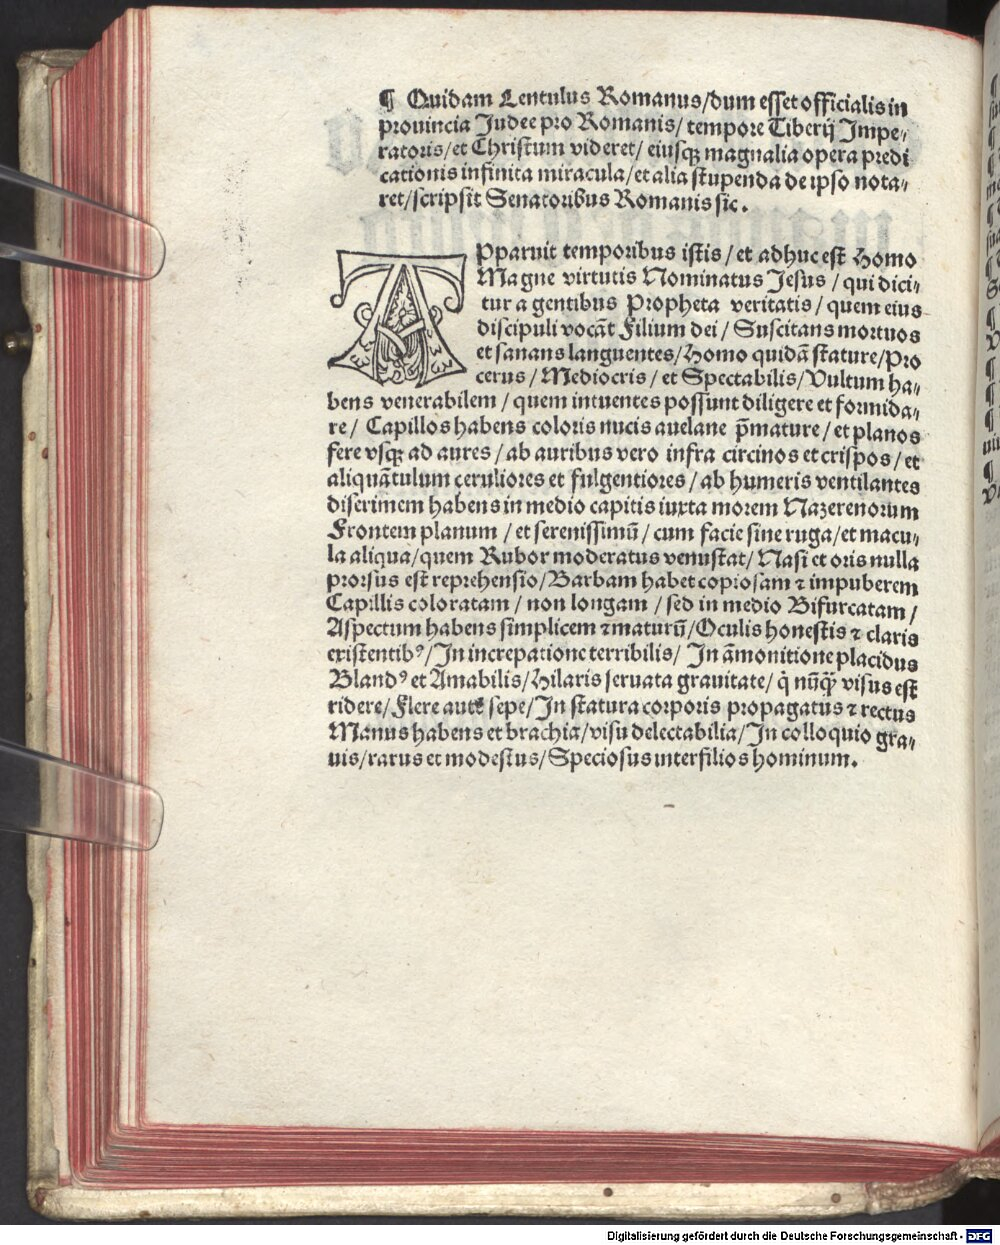 ¶ Quidam Lentulus Romanus/dum esset officialis in
prouincia Judee pro Romanis/ tempore Tiberij Impe⸗
ratoris/et Christum videret/ eiusqꝫ magnalia opera predi
cationis infinita miracula/et alia stupenda de ipso nota⸗
ret/scripsit Senatoribus Romanis sic.
APparuit temporibus istis/ et adhuc est Homo
Magne virtutis Nominatus Jesus/ qui dici⸗
tur a gentibus Propheta veritatis/ quem eius
discipuli vocāt Filium dei/ Suscitans mortuos
et sanans languentes/Homo quidā stature/Pro
cerus/ Mediocris/ et Spectabilis/Vultum ha⸗
bens venerabilem/ quem intuentes possunt diligere et formida⸗
re/ Capillos habens coloris nucis auelane p̄mature/ et planos
fere vsqꝫ ad aures/ ab auribus vero infra circinos et crispos/ et
aliquātulum ceruliores et fulgentiores/ ab humeris ventilantes
discrimem habens in medio capitis iuxta morem Nazerenorum
Frontem planum/ et serenissimū/ cum facie sine ruga/et macu⸗
la aliqua/quem Rubor moderatus venustat/ Nasi et oris nulla
prorsus est reprehensio/Barbam habet copiosam ⁊ impuberem
Capillis coloratam/ non longam/ sed in medio Bifurcatam/
Aspectum habens simplicem ⁊ maturū/Oculis honestis ⁊ claris
existentibꝰ/In increpatione terribilis/ In āmonitione placidus
Blandꝰ et Amabilis/Hilaris seruata grauitate/ q̄ nūqꝫ̄ visus est
ridere/Flere autē sepe/In statura corporis propagatus ⁊ rectus
Manus habens et brachia/visu delectabilia/In colloquio gra⸗
uis/rarus et modestus/Speciosus inter filios hominum.
Digitalisierung gefördert durch die Deutsche Forschungsgemeinschaft - DFG